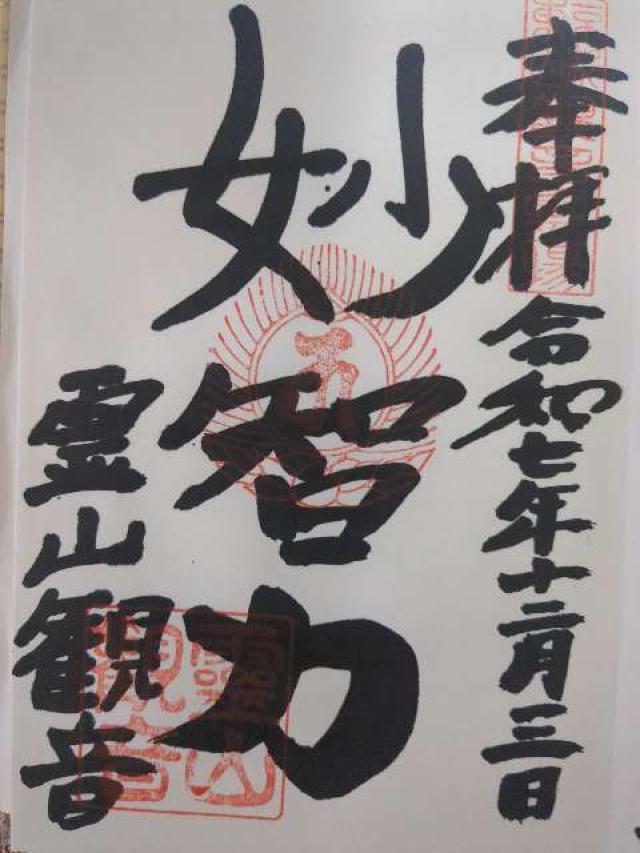 奉拝
令和七年十二月三日
妙智力
霊山観音